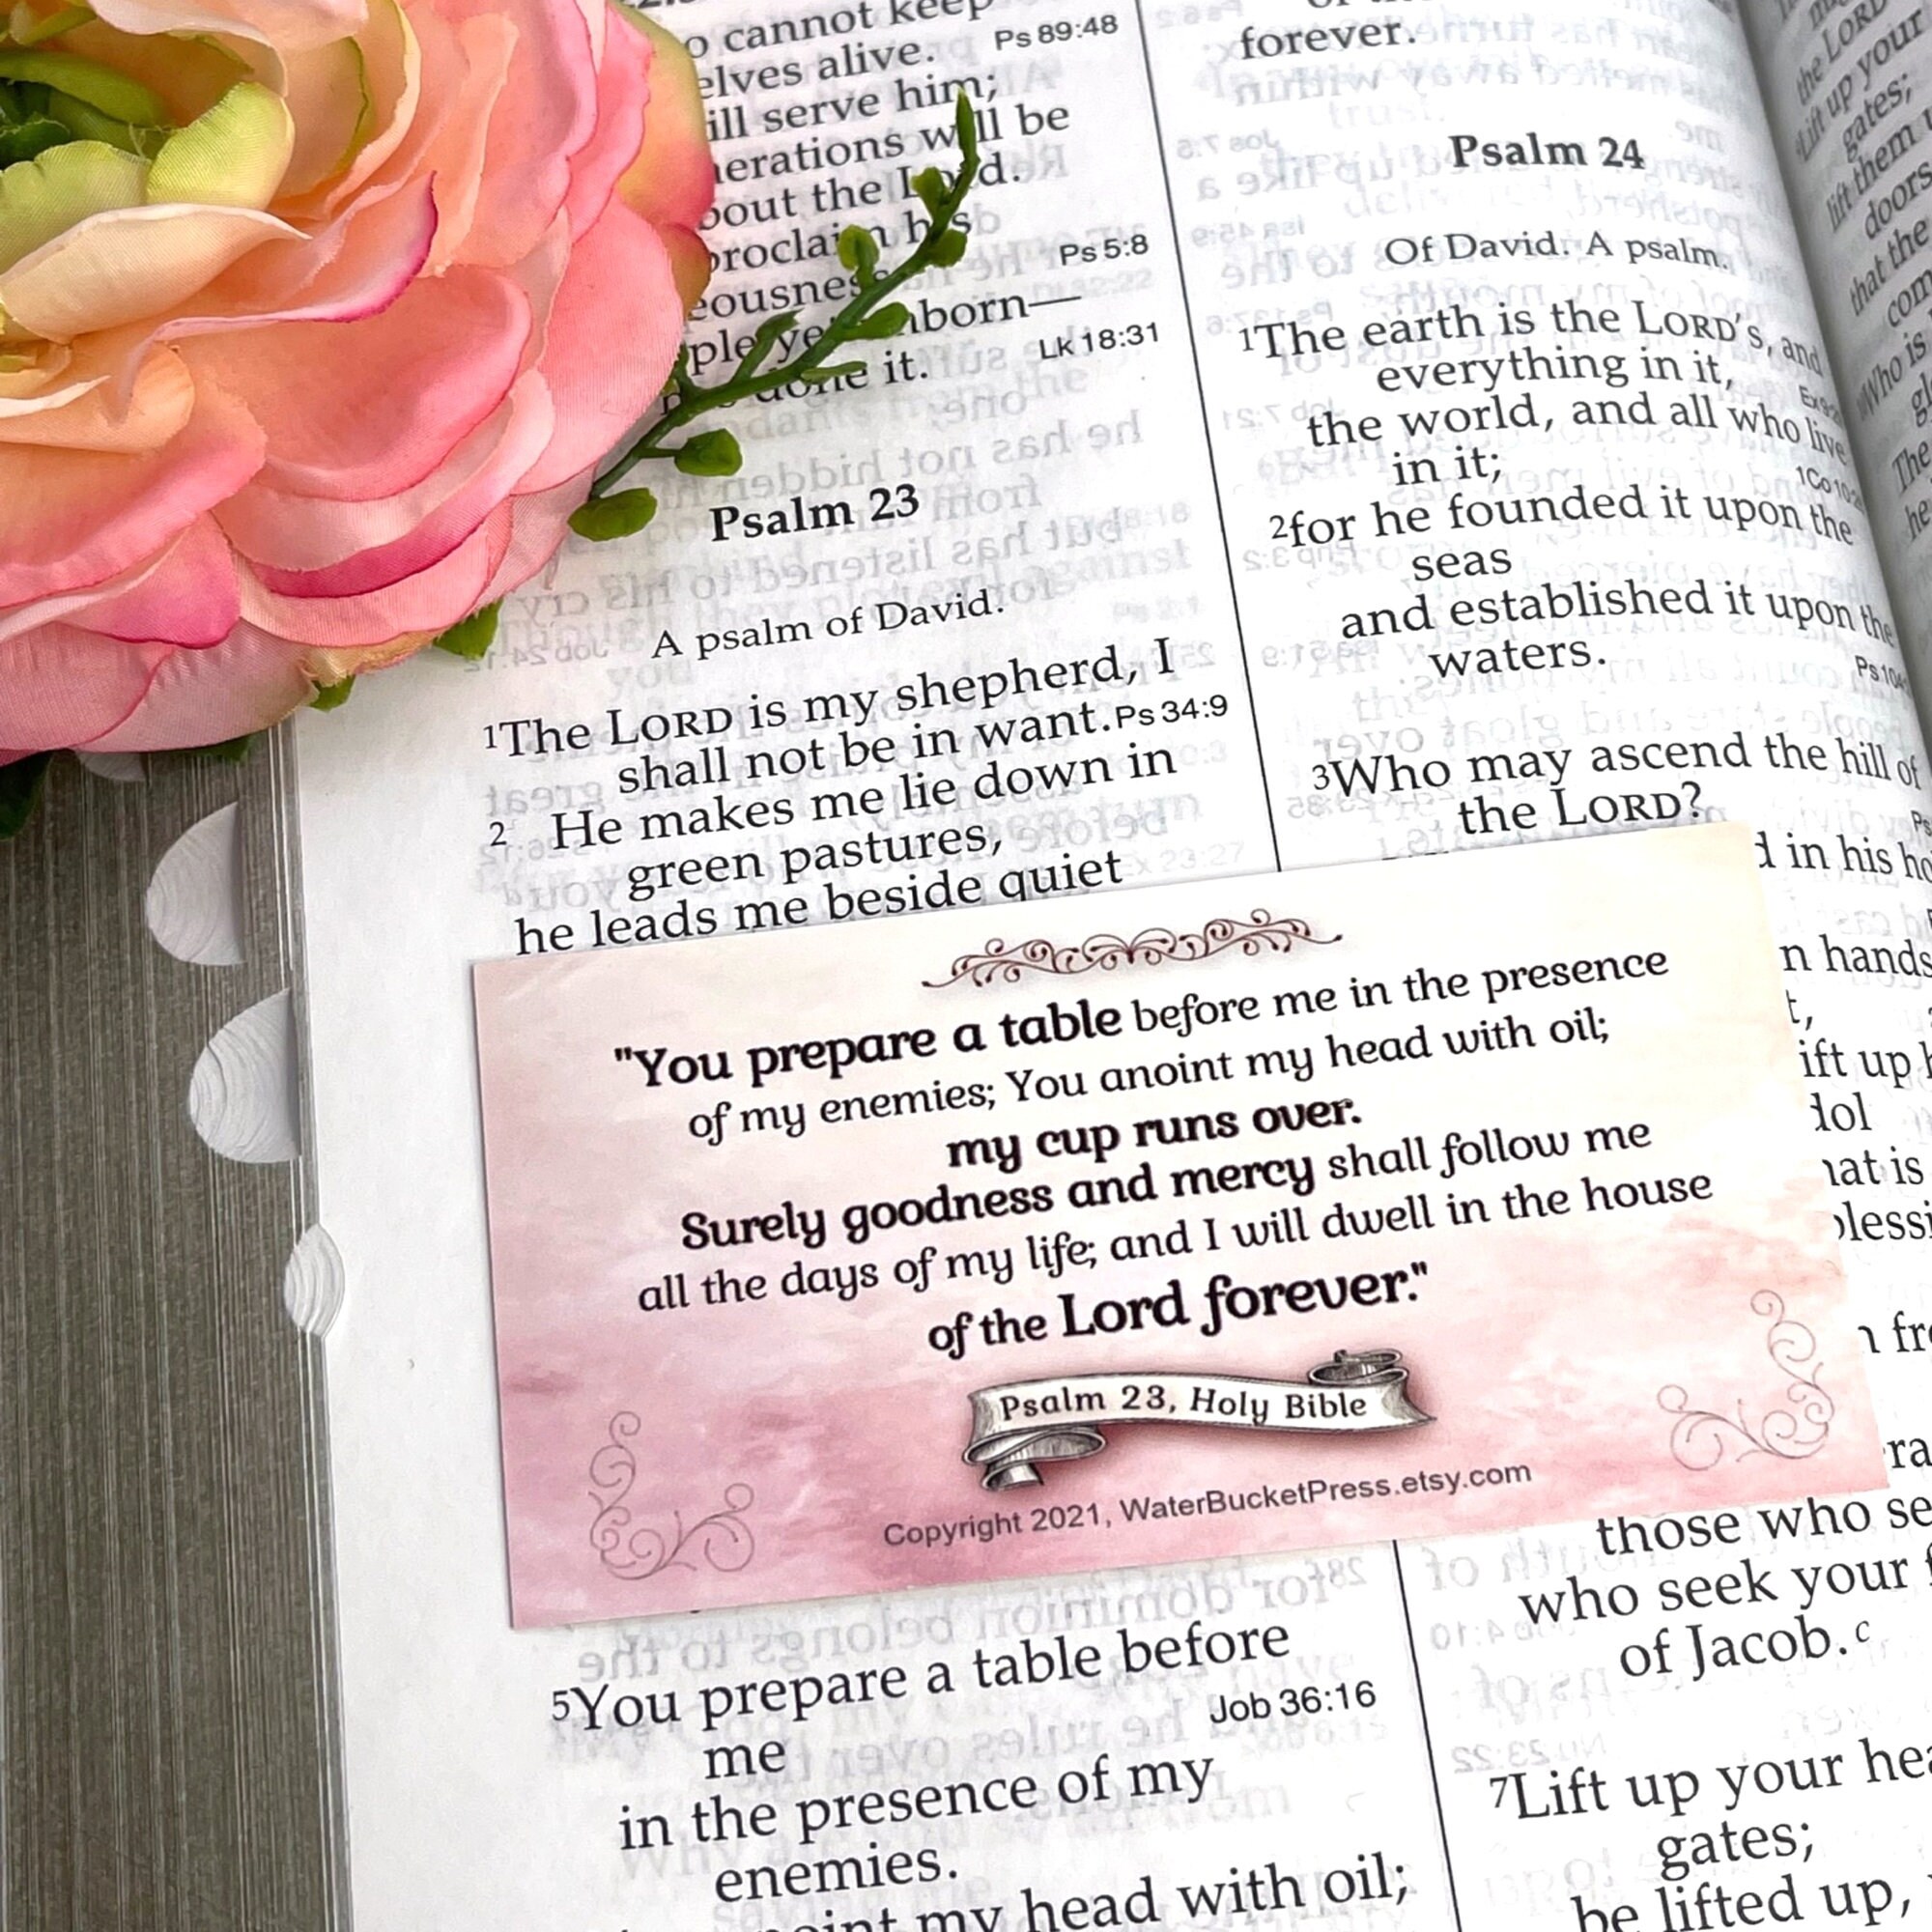 cannot keep
alive. Ps 89:48
serve him;
be
bout the
Ps 5:8
Lk 18:31
it.
Psalm 23
A psalm of David.
1The LORD is my shepherd, I
shall not be in want. Ps 34:9
2 He makes me lie down in
green pastures,
he leads me beside quiet
"You prepare a table before me in the presence
of my enemies; You anoint my head with oil;
my cup runs over.
Surely goodness and mercy shall follow me
all the days of my life; and I will dwell in the house
of the Lord forever."
Psalm 23, Holy Bible
Copyright 2021, WaterBucketPress.etsy.com
5You prepare a table before
me Job 36:16
in the presence of my
enemies.
my head with oil;
forever.
Psalm 24
Of David. A psalm.
1The earth is the LORD's, and
everything in it,
the world, and all who live
in it;
2for he founded it upon the
seas
and established it upon the
waters.
3Who may ascend the hill of
the LORD?
in his
hands
up
is
those who
who seek your
of Jacob. c
7Lift up your
gates;
be lifted up,
the LORD
Lift up your
gates;
lift them
doors
that the
Who is
The
he